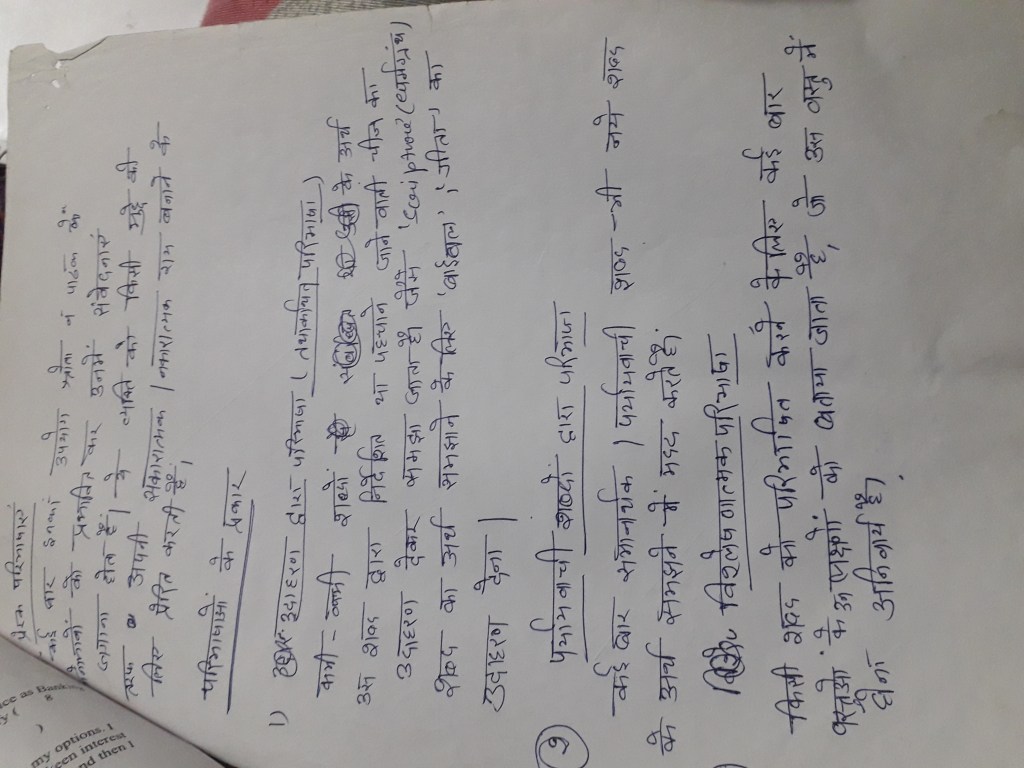 प्रेरक परिभाषाएं
कई बार इनका उपयोग श्रोता व पाठक की
भावनाओं को प्रभावित कर उनमें संवेदनाएं
जगाना होता है। ये व्यक्ति को किसी मुद्दे की
तरफ अपनी सकारात्मक / नकारात्मक राय बनाने के
लिए प्रेरित करती हैं।
परिभाषाओं के प्रकार
1) उदाहरण द्वारा परिभाषा (तथाकथित परिभाषा)
कभी-कभी शब्दों के अर्थ
उस शब्द द्वारा निर्देशित या पहचाने जाने वाली चीज का
उदाहरण देकर समझा जाता है जैसे
शब्द का अर्थ समझाने के लिए 'बाईबल', 'गीता' का
उदाहरण देना।
2 पर्यायवाची शब्दों द्वारा परिभाषा
कई बार समानार्थक / पर्यायवाची शब्द-भी नये शब्द
के अर्थ समझने में मदद करते हैं।
विश्लेषणात्मक परिभाषा
किसी शब्द को परिभाषित करने के लिए कई बार
वस्तुओं के उन गुणों को बताया जाता है, जो उस वस्तु में
होना अनिवार्य है।
my options. I
een interest
nd then I